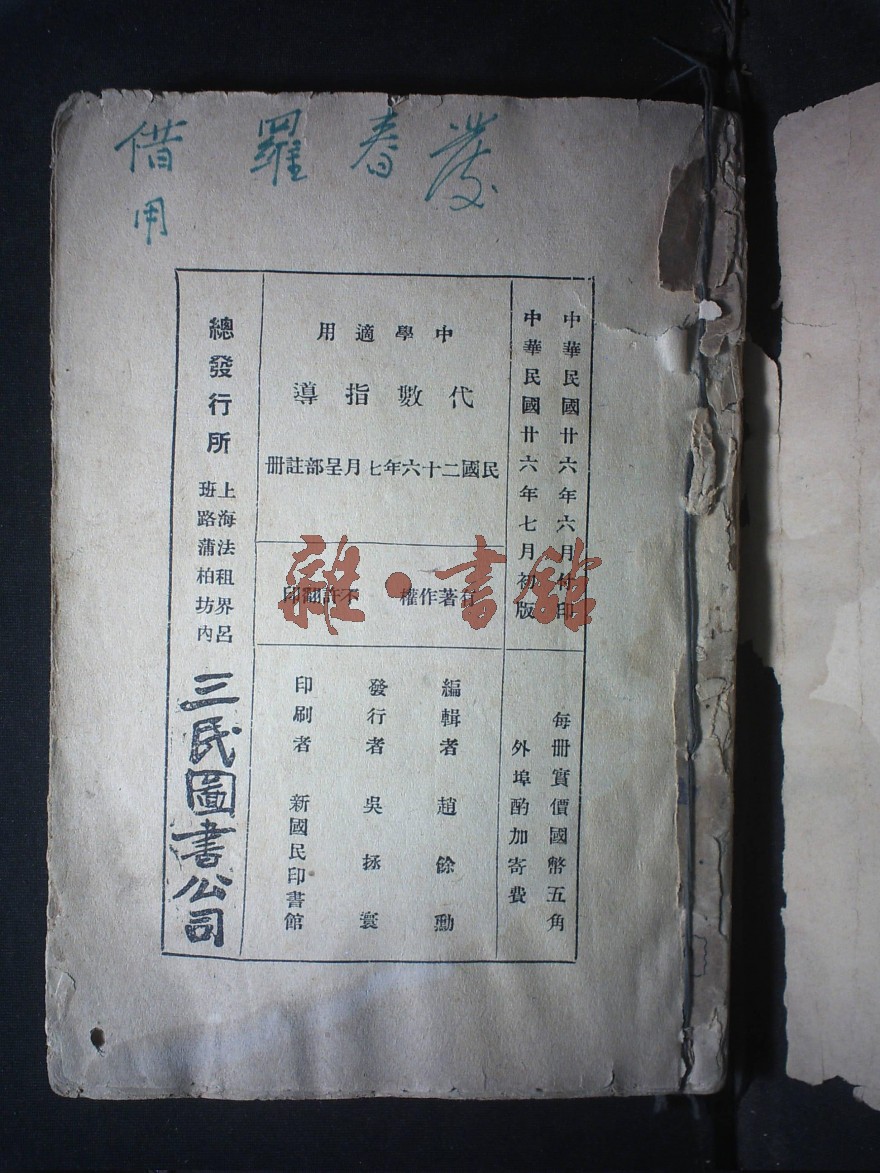 借 羅春發
用
中華民國廿六年六月付印
中華民國廿六年七月初版
每冊實價國幣五角
外埠酌加寄費
中學適用
代數指導
民國二十六年七月呈部註冊
有著作權 不許翻印
編輯者 趙餘勳
發行者 吳拯寰
印刷者 新國民印書館
總發行所
上海法租界呂
班路蒲柏坊內
三民圖書公司
雜·書館